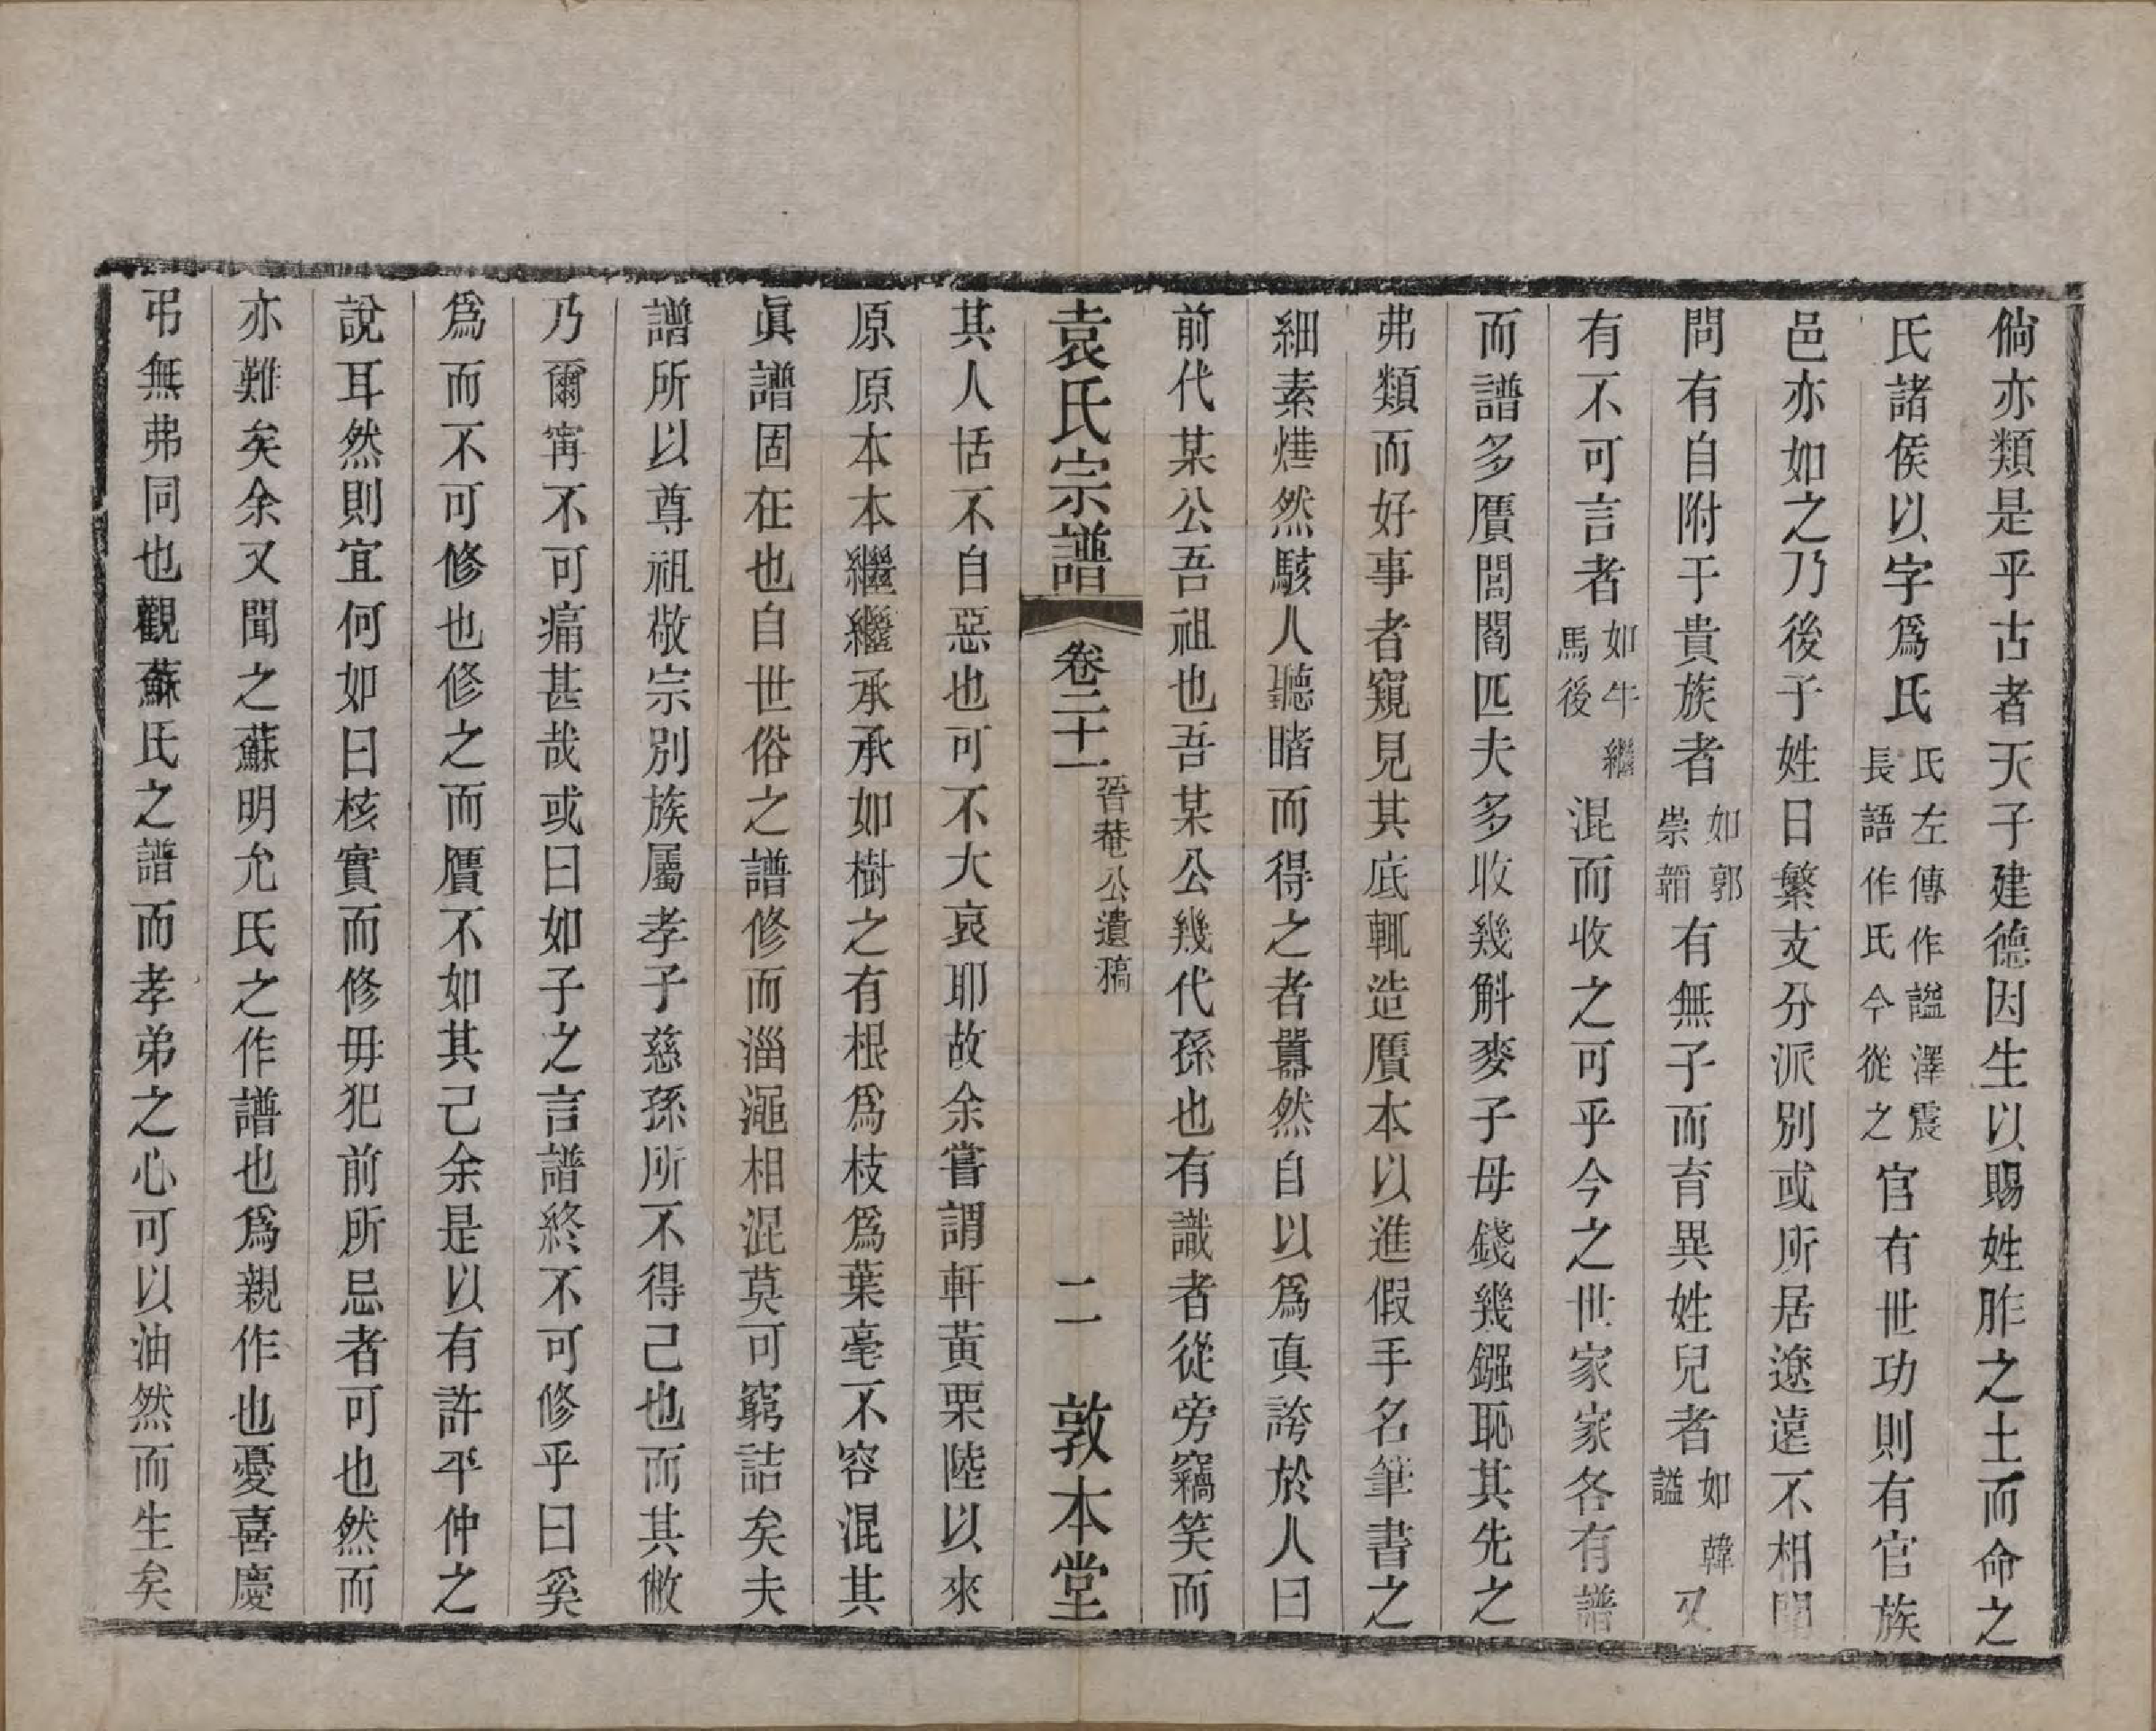 倘亦類是乎古者天子建德因生以賜姓胙之土而命之
氏諸侯以字爲氏氏左傳作謚澤震長語作氏今從之官有世功則有官族
邑亦如之乃後子姓日繁支分派別或所居遼遠不相聞
問有自附于貴族者如郭崇韜有無子而育異姓兒者如韓謚又
有不可言者如牛繼馬後混而收之可乎今之世家家各有譜
而譜多贋閭閻匹夫多收幾斛麥子母錢幾鏹恥其先之
弗類而好事者窺見其底輒造贋本以進假手名筆書之
細素煒然駭人聽睹而得之者囂然自以爲真誇於人曰
前代某公吾祖也吾某公幾代孫也有識者從旁竊笑而
袁氏宗譜 卷二十一 晉菴公遺稿 二 敦本堂
其人恬不自惡也可不大哀耶故余嘗謂軒黃栗陸以來
原原本本繼繼承承如樹之有根爲枝爲葉毫不容混其
眞譜固在也自世俗之譜修而淄澠相混莫可窮詰矣夫
譜所以尊祖敬宗別族屬孝子慈孫所不得已也而其敝
乃爾甯不可痛甚哉或曰如子之言譜終不可修乎曰奚
爲而不可修也修之而贋不如其已余是以有許平仲之
說耳然則宜何如曰核實而修毋犯前所忌者可也然而
亦難矣余又聞之蘇明允氏之作譜也爲親作也憂喜慶
弔無弗同也觀蘇氏之譜而孝弟之心可以油然而生矣